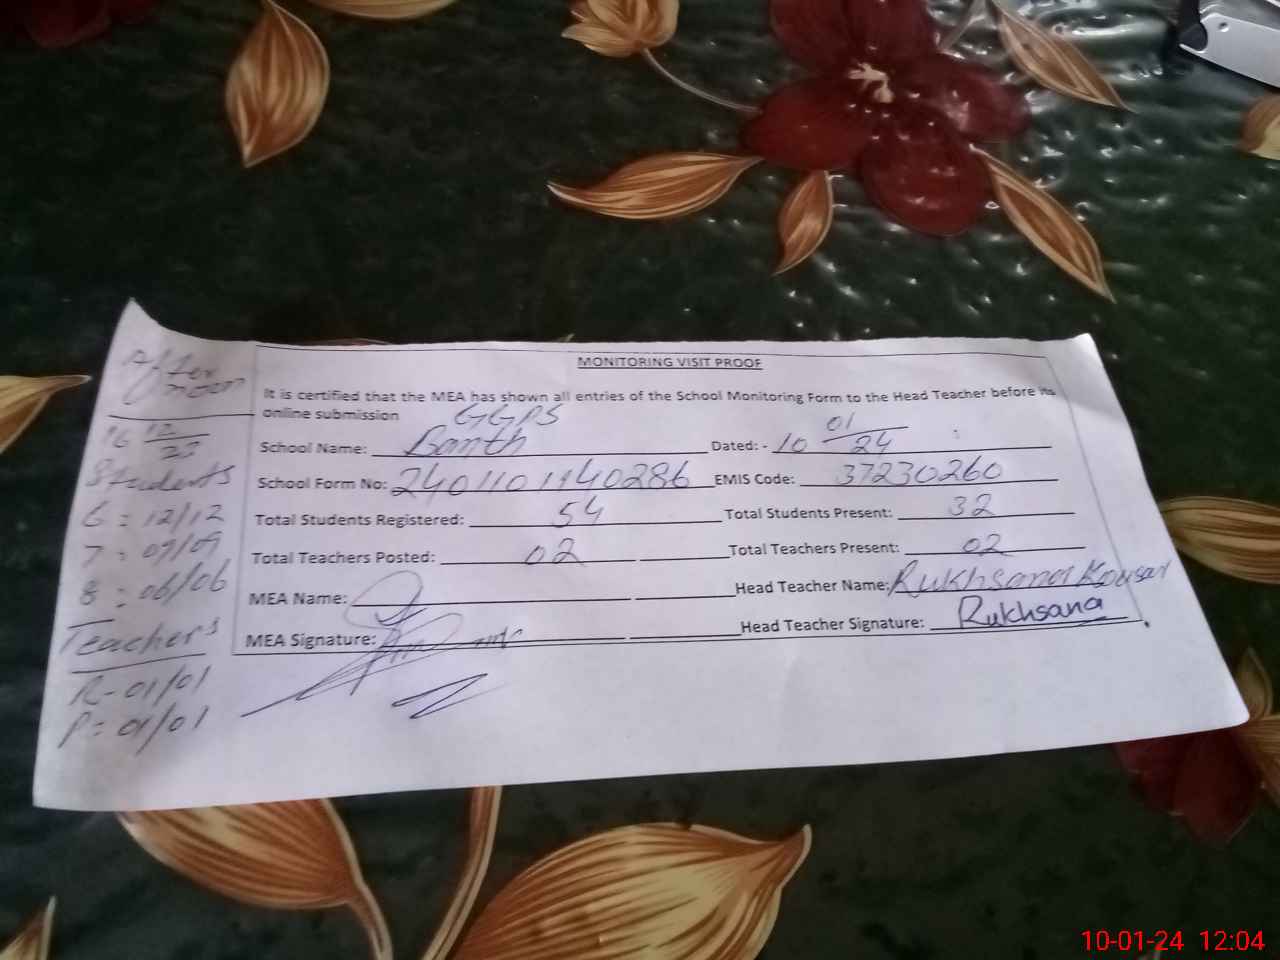 MONITORING VISIT PROOF
It is certified that the MEA has shown all entries of the School Monitoring Form to the Head Teacher before its
online submission
School Name: GGPS Banth Dated: - 10 01/24
School Form No: 2401101140286 EMIS Code: 37230260
Total Students Registered: 54 Total Students Present: 32
Total Teachers Posted: 02 Total Teachers Present: 02
MEA Name: Head Teacher Name: Rukhsana Kousar
MEA Signature: Head Teacher Signature: Rukhsana
After
noon
16 12/23
Students
6 : 12/12
7 : 09/09
8 : 06/06
Teachers
R - 01/01
P = 01/01
10-01-24 12:04